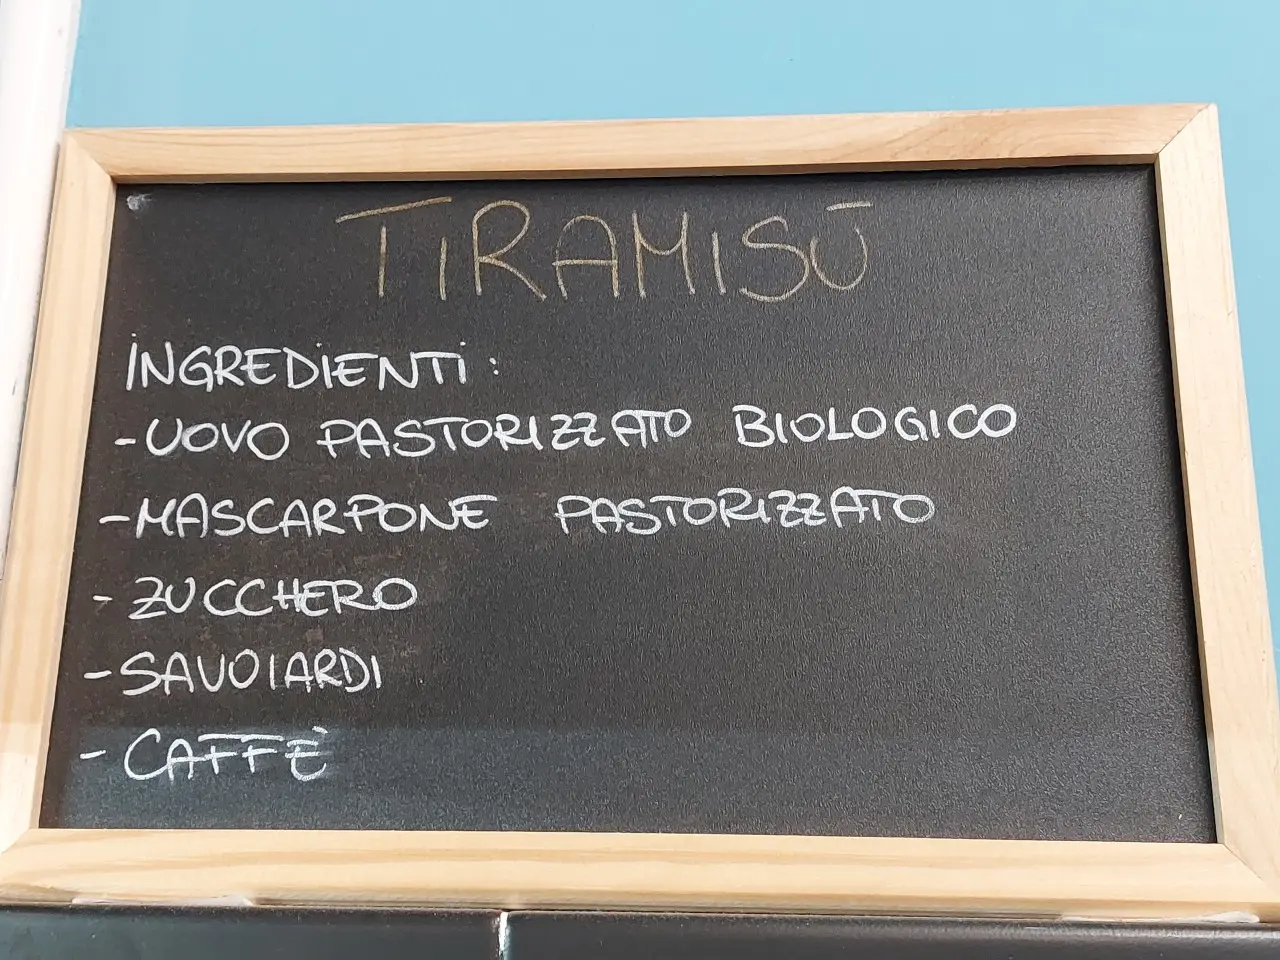 TIRAMISÙ
INGREDIENTI:
-UOVO PASTORIZZATO BIOLOGICO
-MASCARPONE PASTORIZZATO
- ZUCCHERO
-SAVOIARDI
- CAFFÈ